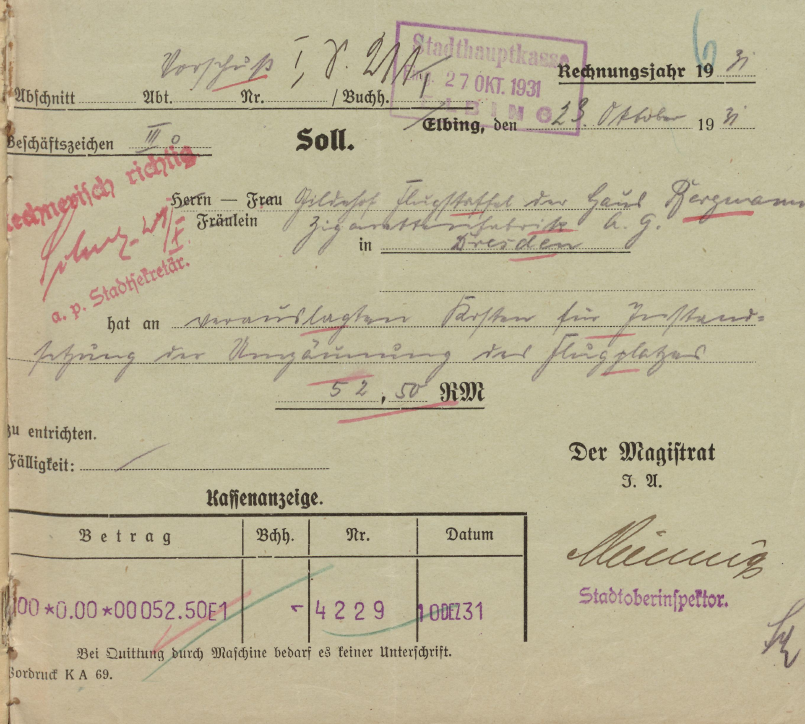 Vorschuß I, V. 
Stadthauptkasse
Eing. 27 OKT. 1931
ELBING
6
Rechnungsjahr 19 31
Abschnitt Abt. Nr. / Buchh.
Elbing, den 23. Oktober 19 31
Geschäftszeichen III
Soll.
Rechnerisch richtig
a. p. Stadtsekretär.
Herrn — Frau
Fräulein
Flugstaffel der Haus Bergmann
Zigarettenfabrik A. G.
in Dresden
hat an verauslagten Kosten für Instand-
setzung der Umzäunung des Flugplatzes
52,50 RM
zu entrichten.
Fälligkeit:
Der Magistrat
J. A.
Stadtoberinspektor.
Kassenanzeige.
Betrag Bchh. Nr. Datum
00*0.00*00052.50E1 1 4229 10DEZ31
Bei Quittung durch Maschine bedarf es keiner Unterschrift.
Vordruck K A 69.